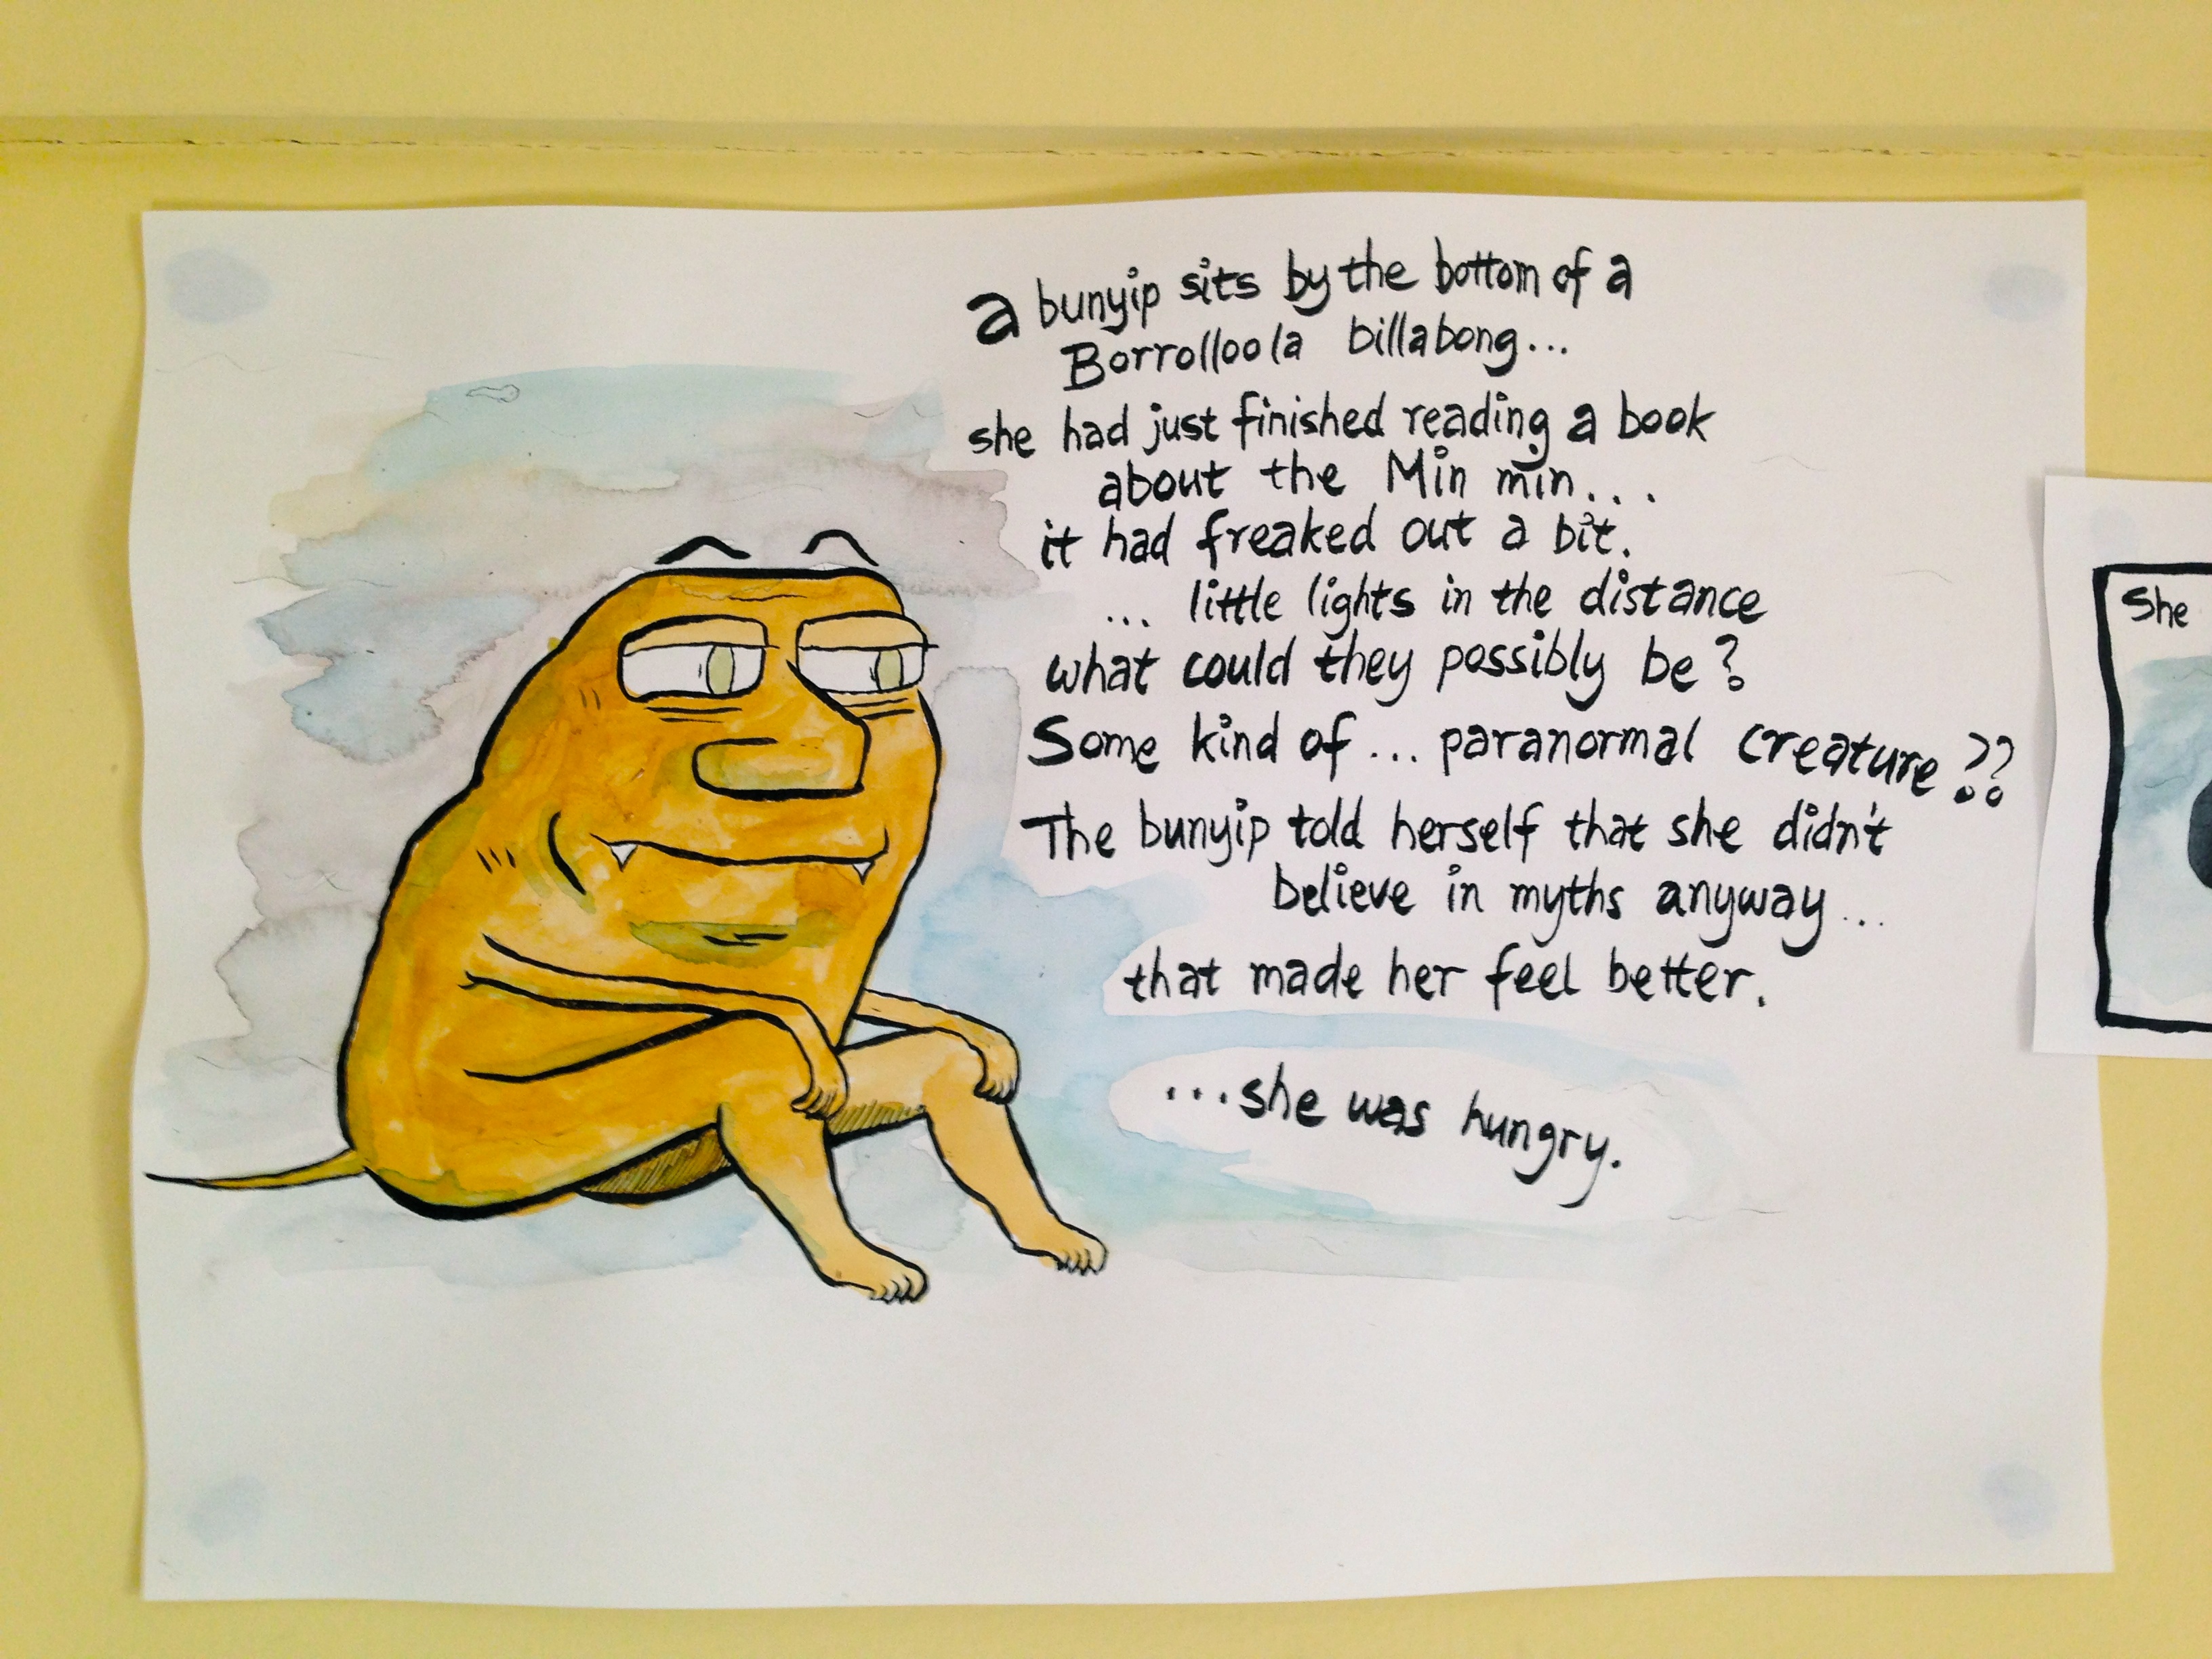 a bunyip sits by the bottom of a
Borrolloola billabong...
she had just finished reading a book
about the Min min...
it had freaked out a bit.
... little lights in the distance
what could they possibly be?
Some kind of... paranormal creature??
The bunyip told herself that she didn't
believe in myths anyway...
that made her feel better.
...she was hungry.
She